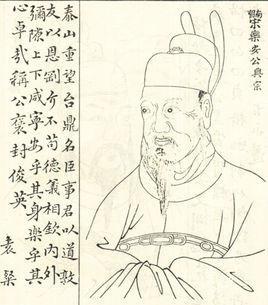 宋樂安公興宗
泰山重望台鼎名臣事君以道敦
友以恩剛介不苟德義相欽內外
彌隙上下咸寧安乎其身樂乎其
心卓哉稱公褒封俊英
袁粲